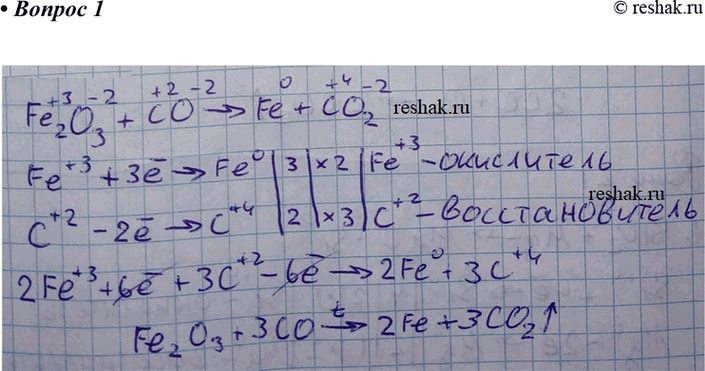 • Вопрос 1
© reshak.ru
Fe₂⁺³O₃⁻² + C⁺²O⁻² → Fe⁰ + C⁺⁴O₂⁻² reshak.ru
Fe⁺³ + 3ē → Fe⁰ | 3 | ×2 | Fe⁺³ – окислитель
reshak.ru
C⁺² – 2ē → C⁺⁴ | 2 | ×3 | C⁺² – восстановитель
2Fe⁺³ + 6ē + 3C⁺² – 6ē → 2Fe⁰ + 3C⁺⁴
Fe₂O₃ + 3CO →ᵗ 2Fe + 3CO₂↑